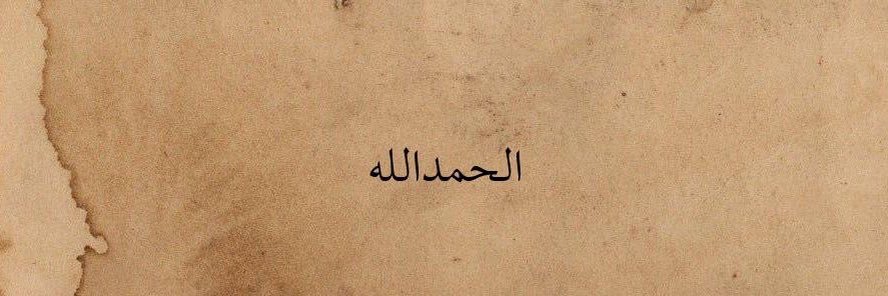 الحمدالله